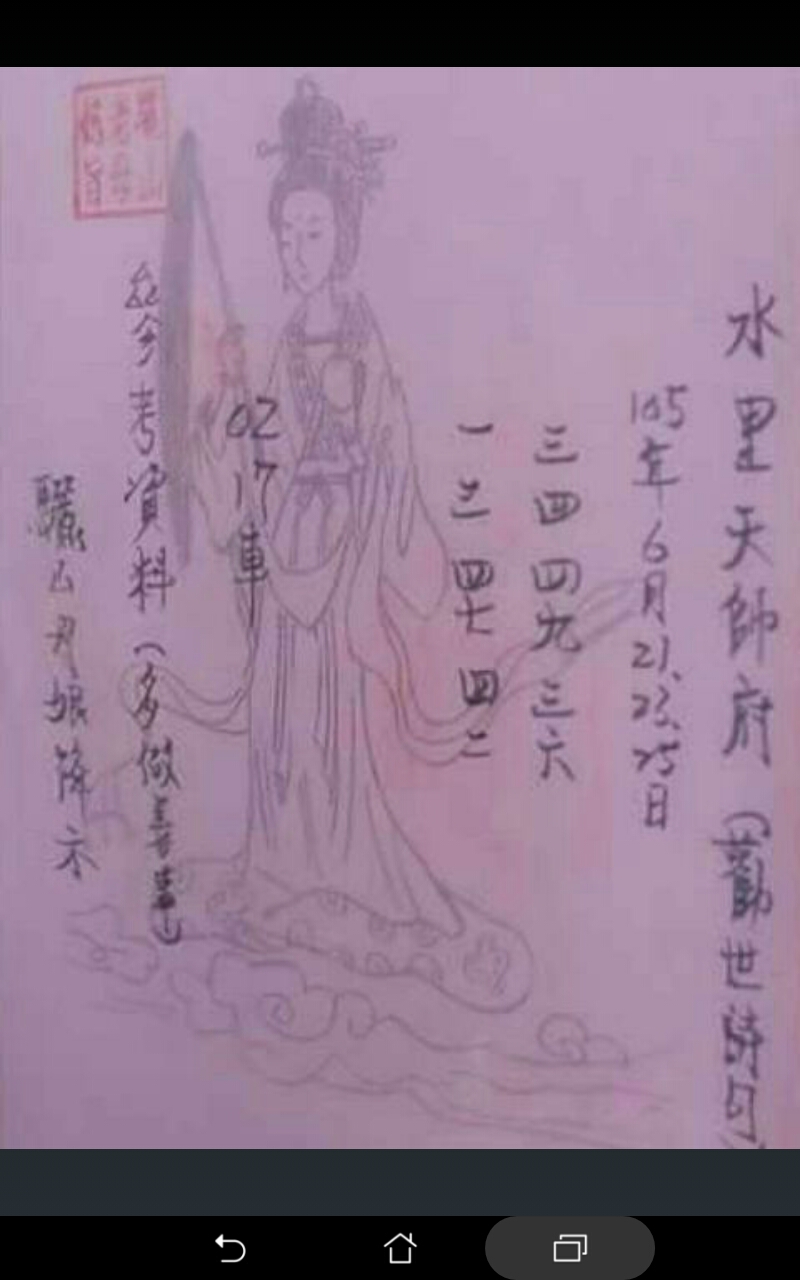 水里天師府(勸世詩句)
105年6月21、23、25日
三四 四九 三六
一三 四七 四二
02 17車
參考資料(多做善事)
驪山母娘降示